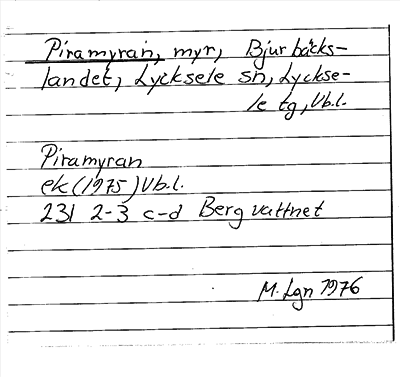 Piramyran, myr, Bjurbäcks-
landet, Lycksele sn, Lyckse-
le tg, Vb.l.
Piramyran
ek (1975) Vb.l.
231 2-3 c-d Bergvattnet
M. Lgn 1976